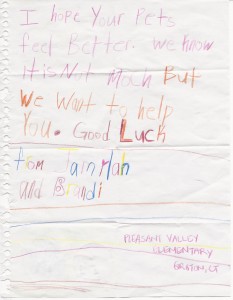 I hope Your Pets
feel Better. We know
it is Not Moch But
We Want to help
You. Good Luck
from Tainmah
and Brandi
PLEASANT VALLEY
ELEMENTARY
GROTON, CT